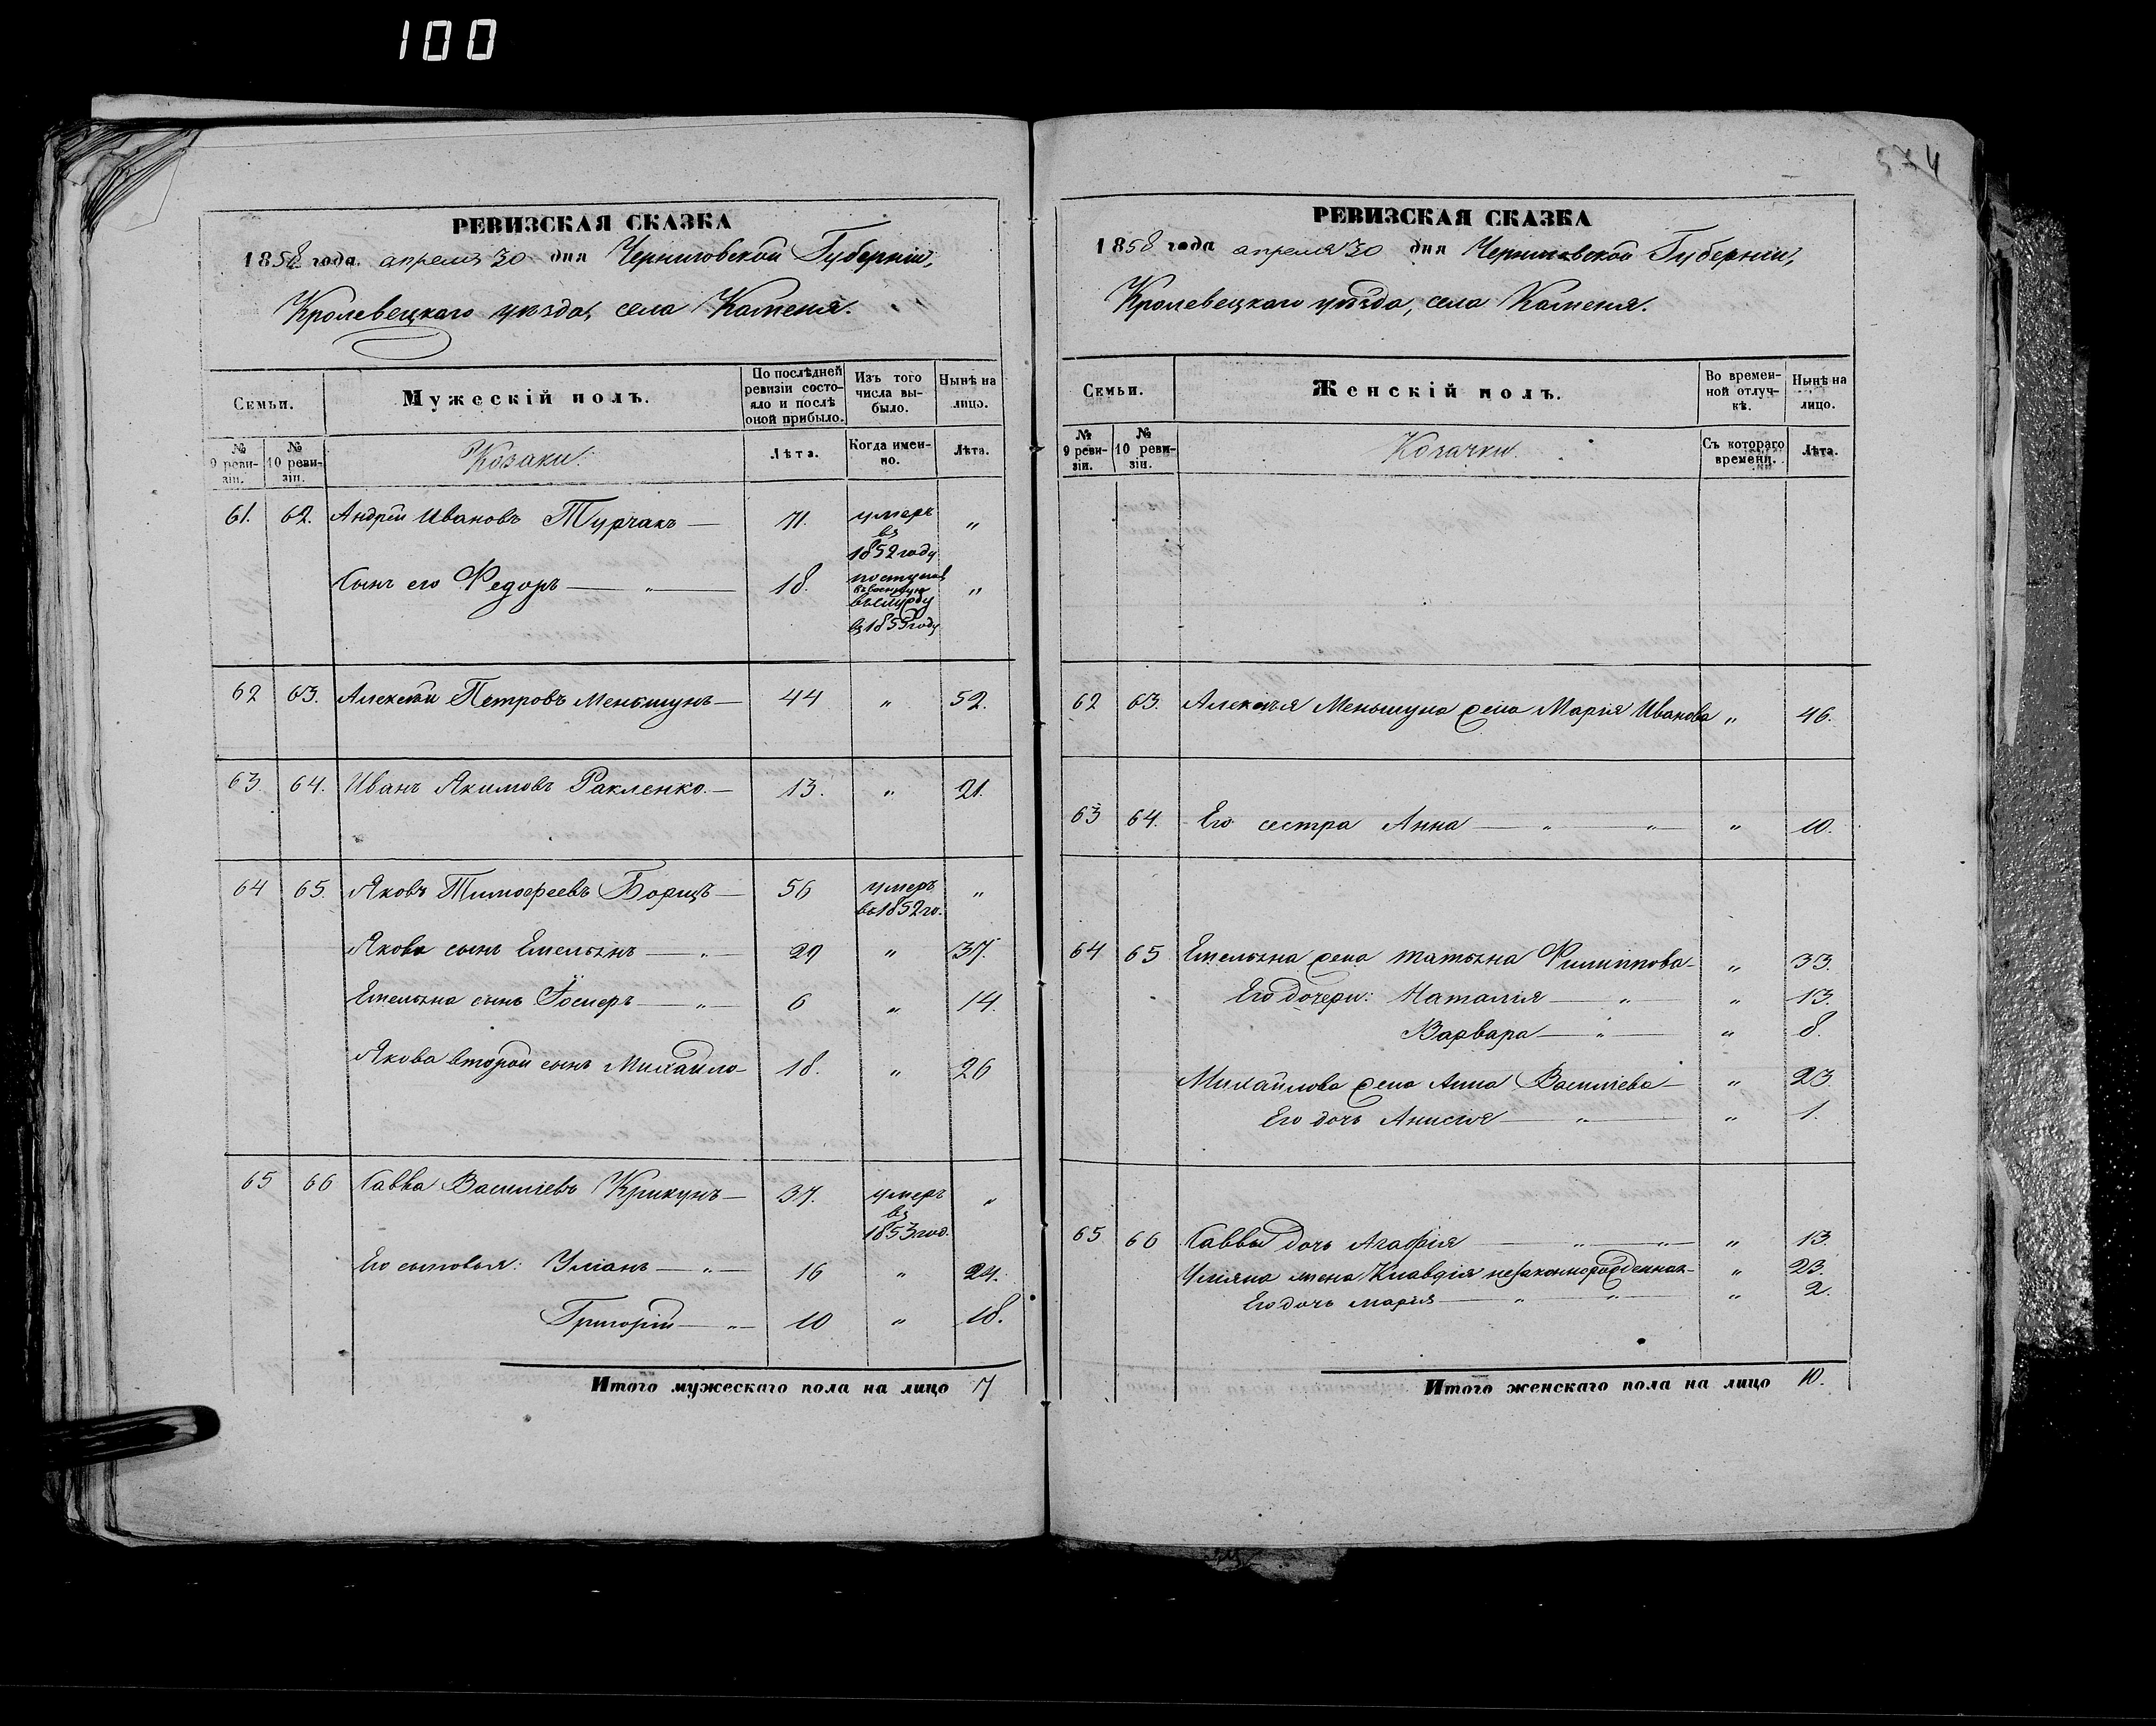 100
574
РЕВИЗСКАЯ СКАЗКА
1858 года апреля 30 дня Черниговской Губерніи,
Кролевецкаго уѣзда, села Каменя.
Семьи.
Мужескій полъ.
По послѣдней ревизіи состояло и послѣ оной прибыло.
Изъ того числа выбыло.
Нынѣ на лицо.
№ 9 ревизіи.
№ 10 ревизіи.
Козаки.
Лѣта.
Когда именно.
Лѣта.
61. 62. Андрей Ивановъ Турчакъ — 71. умеръ въ 1852 году "
Сынъ его Федоръ — " — 18. поступилъ въ 1855 году "
62 63. Алексѣй Петровъ Меньшунъ — 44 " 52.
63 64. Иванъ Якимовъ Ракленко. — 13. " 21.
64 65. Яковъ Тимофеевъ Борщъ — 56 умеръ въ 1852 го. "
Якова сынъ Емельянъ — " 29 " 37.
Емельяна сынъ — " 6 " 14.
Якова второй сынъ Михайло 18. " 26
65 66 Савва Василіевъ Крикунъ — 37. умеръ въ 1853 год. "
Его сыновья: Уліанъ — " — 16 " 24.
Григорій — " — 10 " 18.
Итого мужескаго пола на лицо 7
РЕВИЗСКАЯ СКАЗКА
1858 года апреля 30 дня Черниговской Губерніи,
Кролевецкаго уѣзда, села Каменя.
Семьи.
Женскій полъ.
Во временной отлучкѣ.
Нынѣ на лицо.
№ 9 ревизіи.
№ 10 ревизіи.
Козачки.
Съ котораго времени.
Лѣта.
62 63. Алексѣя Меньшуна жена Марія Иванова " 46.
63 64. Его сестра Анна — " — " — " 10.
64 65 Емельяна жена Татьяна Филиппова — " 33.
Его дочери: Наталія — " — " 13.
Варвара — " — " 8.
Михайлова жена Анна Василіева — " 23
Его дочь Анисія — " — " 1.
65 66 Саввы дочь Агафія — " — " — " 13.
Уліяна жена Клавдія незаконнорожденная — " 23.
Его дочь Марія — " — " — " 2.
Итого женскаго пола на лицо 10.